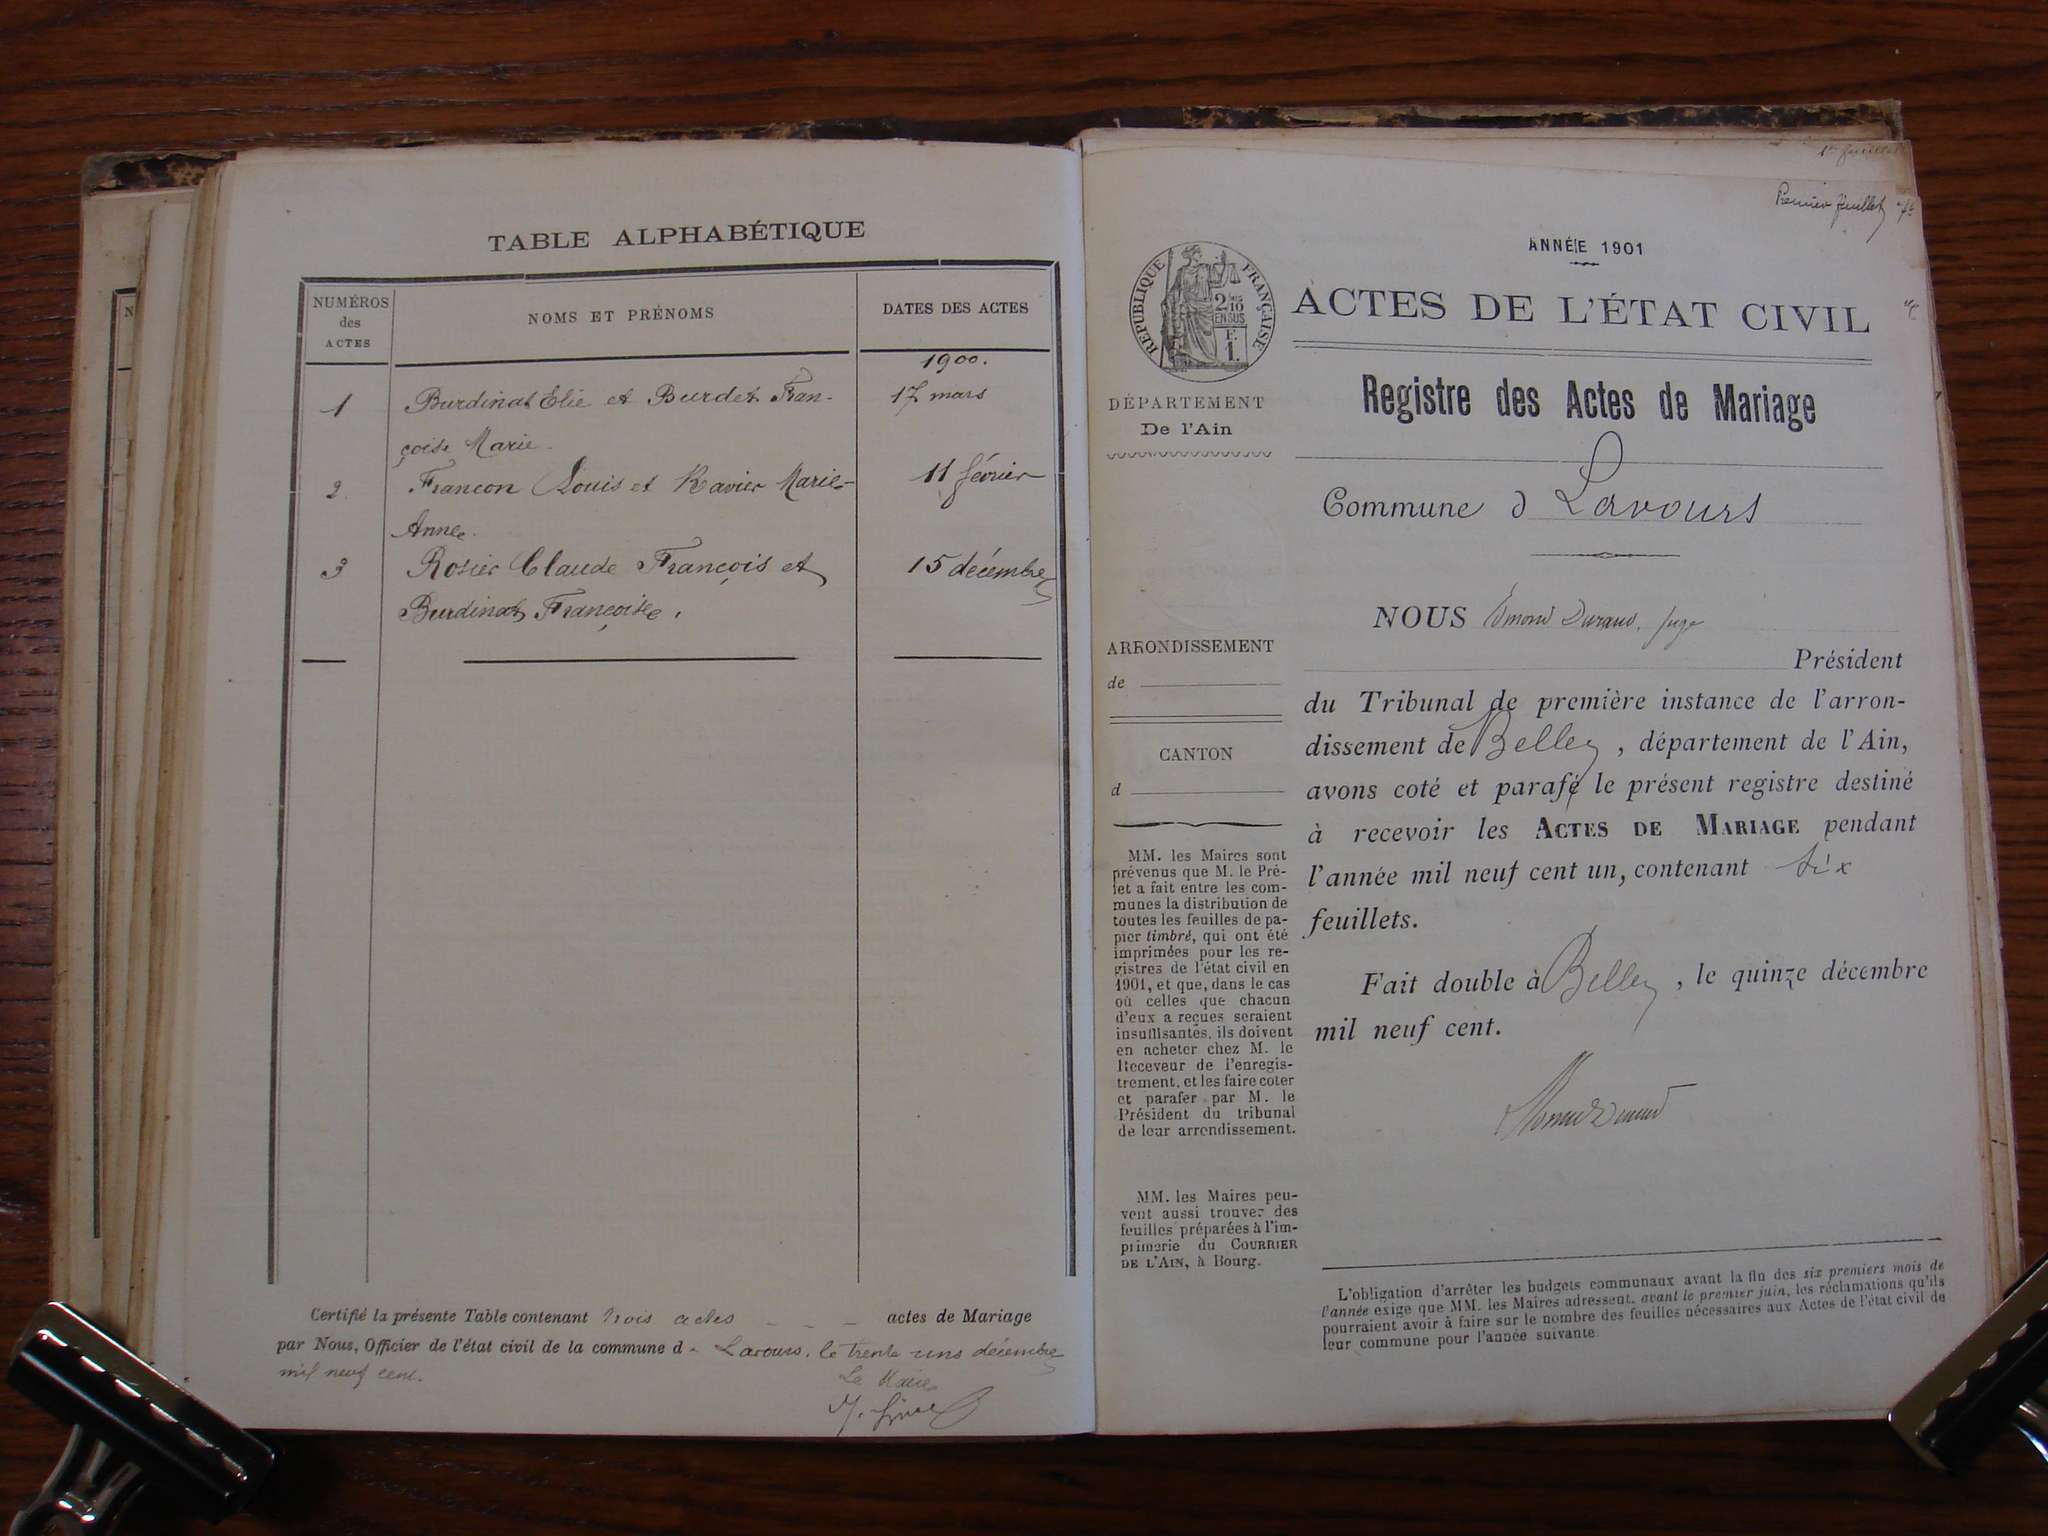 TABLE ALPHABÉTIQUE
NUMÉROS
des
ACTES
NOMS ET PRÉNOMS
DATES DES ACTES
1900.
1 Burdinat Elie et Burdet Fran- 17 mars
çoise Marie.
2 Francon Louis et Ravier Marie- 11 février
Anne.
3 Rosier Claude François et 15 décembre
Burdinat Françoise.
Certifié la présente Table contenant trois actes - - - actes de Mariage
par Nous, Officier de l'état civil de la commune d - Lavours, le trente uns décembre
mil neuf cent.
Le Maire
1er feuillet
Premier feuillet
ANNÉE 1901
ACTES DE L'ÉTAT CIVIL
RÉPUBLIQUE FRANÇAISE
2/10
EN SUS
F.
1.
DÉPARTEMENT
De l'Ain
Registre des Actes de Mariage
Commune d Lavours
NOUS Edmond Durand, juge
Président
du Tribunal de première instance de l'arron-
dissement de Belley, département de l'Ain,
avons coté et parafé le présent registre destiné
à recevoir les ACTES DE MARIAGE pendant
l'année mil neuf cent un, contenant six
feuillets.
Fait double à Belley, le quinze décembre
mil neuf cent.
ARRONDISSEMENT
de
CANTON
d
MM. les Maires sont
prévenus que M. le Pré-
fet a fait entre les com-
munes la distribution de
toutes les feuilles de pa-
pier timbré, qui ont été
imprimées pour les re-
gistres de l'état civil en
1901, et que, dans le cas
où celles que chacun
d'eux a reçues seraient
insuffisantes, ils doivent
en acheter chez M. le
Receveur de l'enregis-
trement, et les faire coter
et parafer par M. le
Président du tribunal
de leur arrondissement.
MM. les Maires peu-
vent aussi trouver des
feuilles préparées à l'im-
primerie du COURRIER
DE L'AIN, à Bourg.
L'obligation d'arrêter les budgets communaux avant la fin des six premiers mois de
l'année exige que MM. les Maires adressent, avant le premier juin, les réclamations qu'ils
pourraient avoir à faire sur le nombre des feuilles nécessaires aux Actes de l'état civil de
leur commune pour l'année suivante.